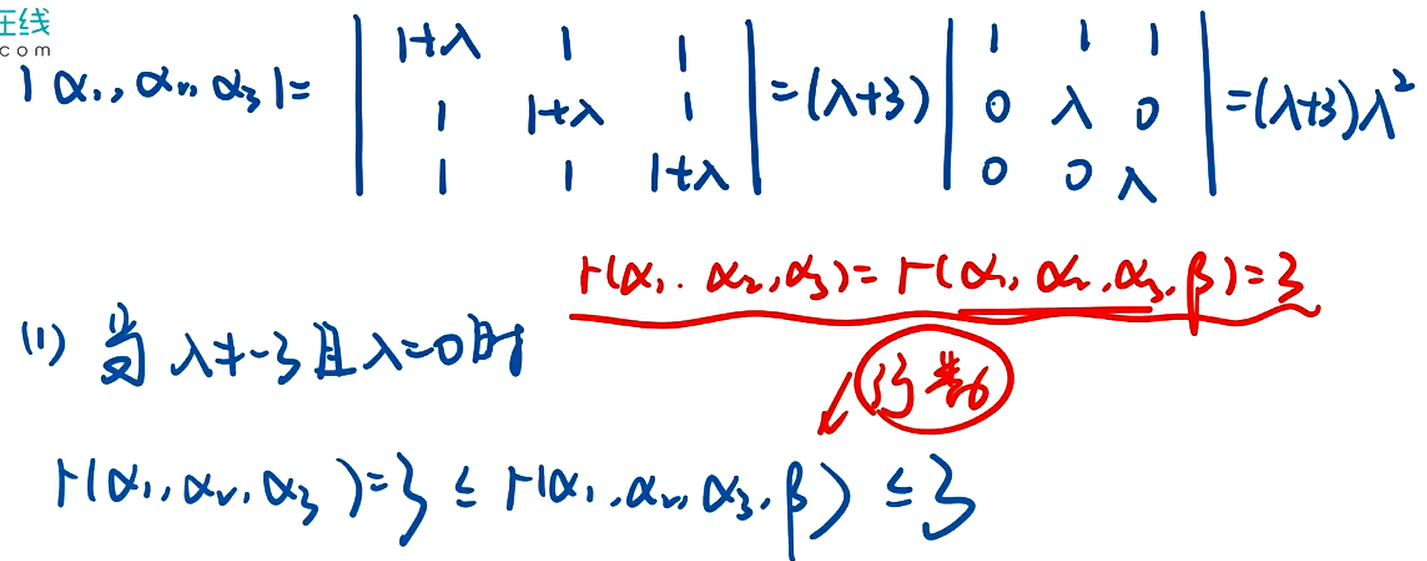 在线
com
|α₁, α₂, α₃| = | 1+λ 1 1 | = (λ+3) | 1 1 1 | = (λ+3)λ²
| 1 1+λ 1 | | 0 λ 0 |
| 1 1 1+λ | | 0 0 λ |
r(α₁, α₂, α₃) = r(α₁, α₂, α₃, β) = 3
(1) 当 λ≠-3 且 λ=0 时
行数
r(α₁, α₂, α₃) = 3 ≤ r(α₁, α₂, α₃, β) ≤ 3